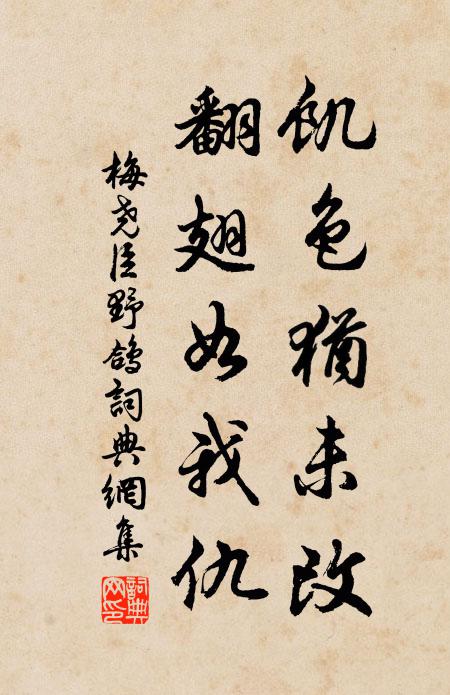 飢色猶未改
翻翅如我仇
梅尧臣野鴿詞典網集
詞典網印